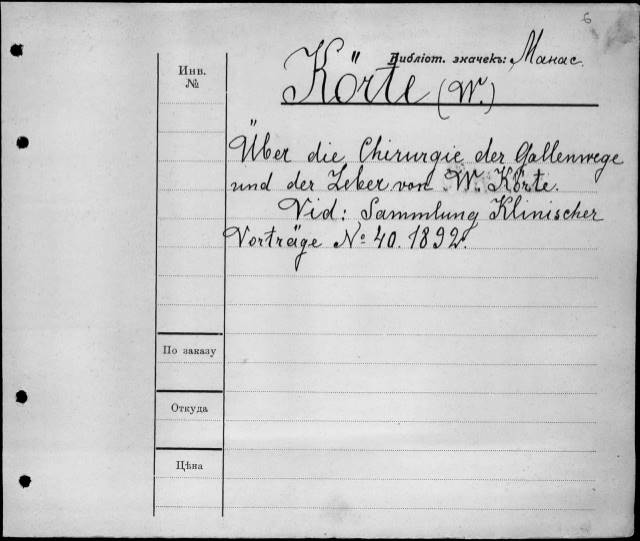 6
Библіот. значекъ: Манас.
Инв.
№
Körte (W.)
Über die Chirurgie der Gallenwege
und der Leber von W. Körte.
Vid: Sammlung Klinischer
Vorträge № 40. 1892.
По заказу
Откуда
Цѣна